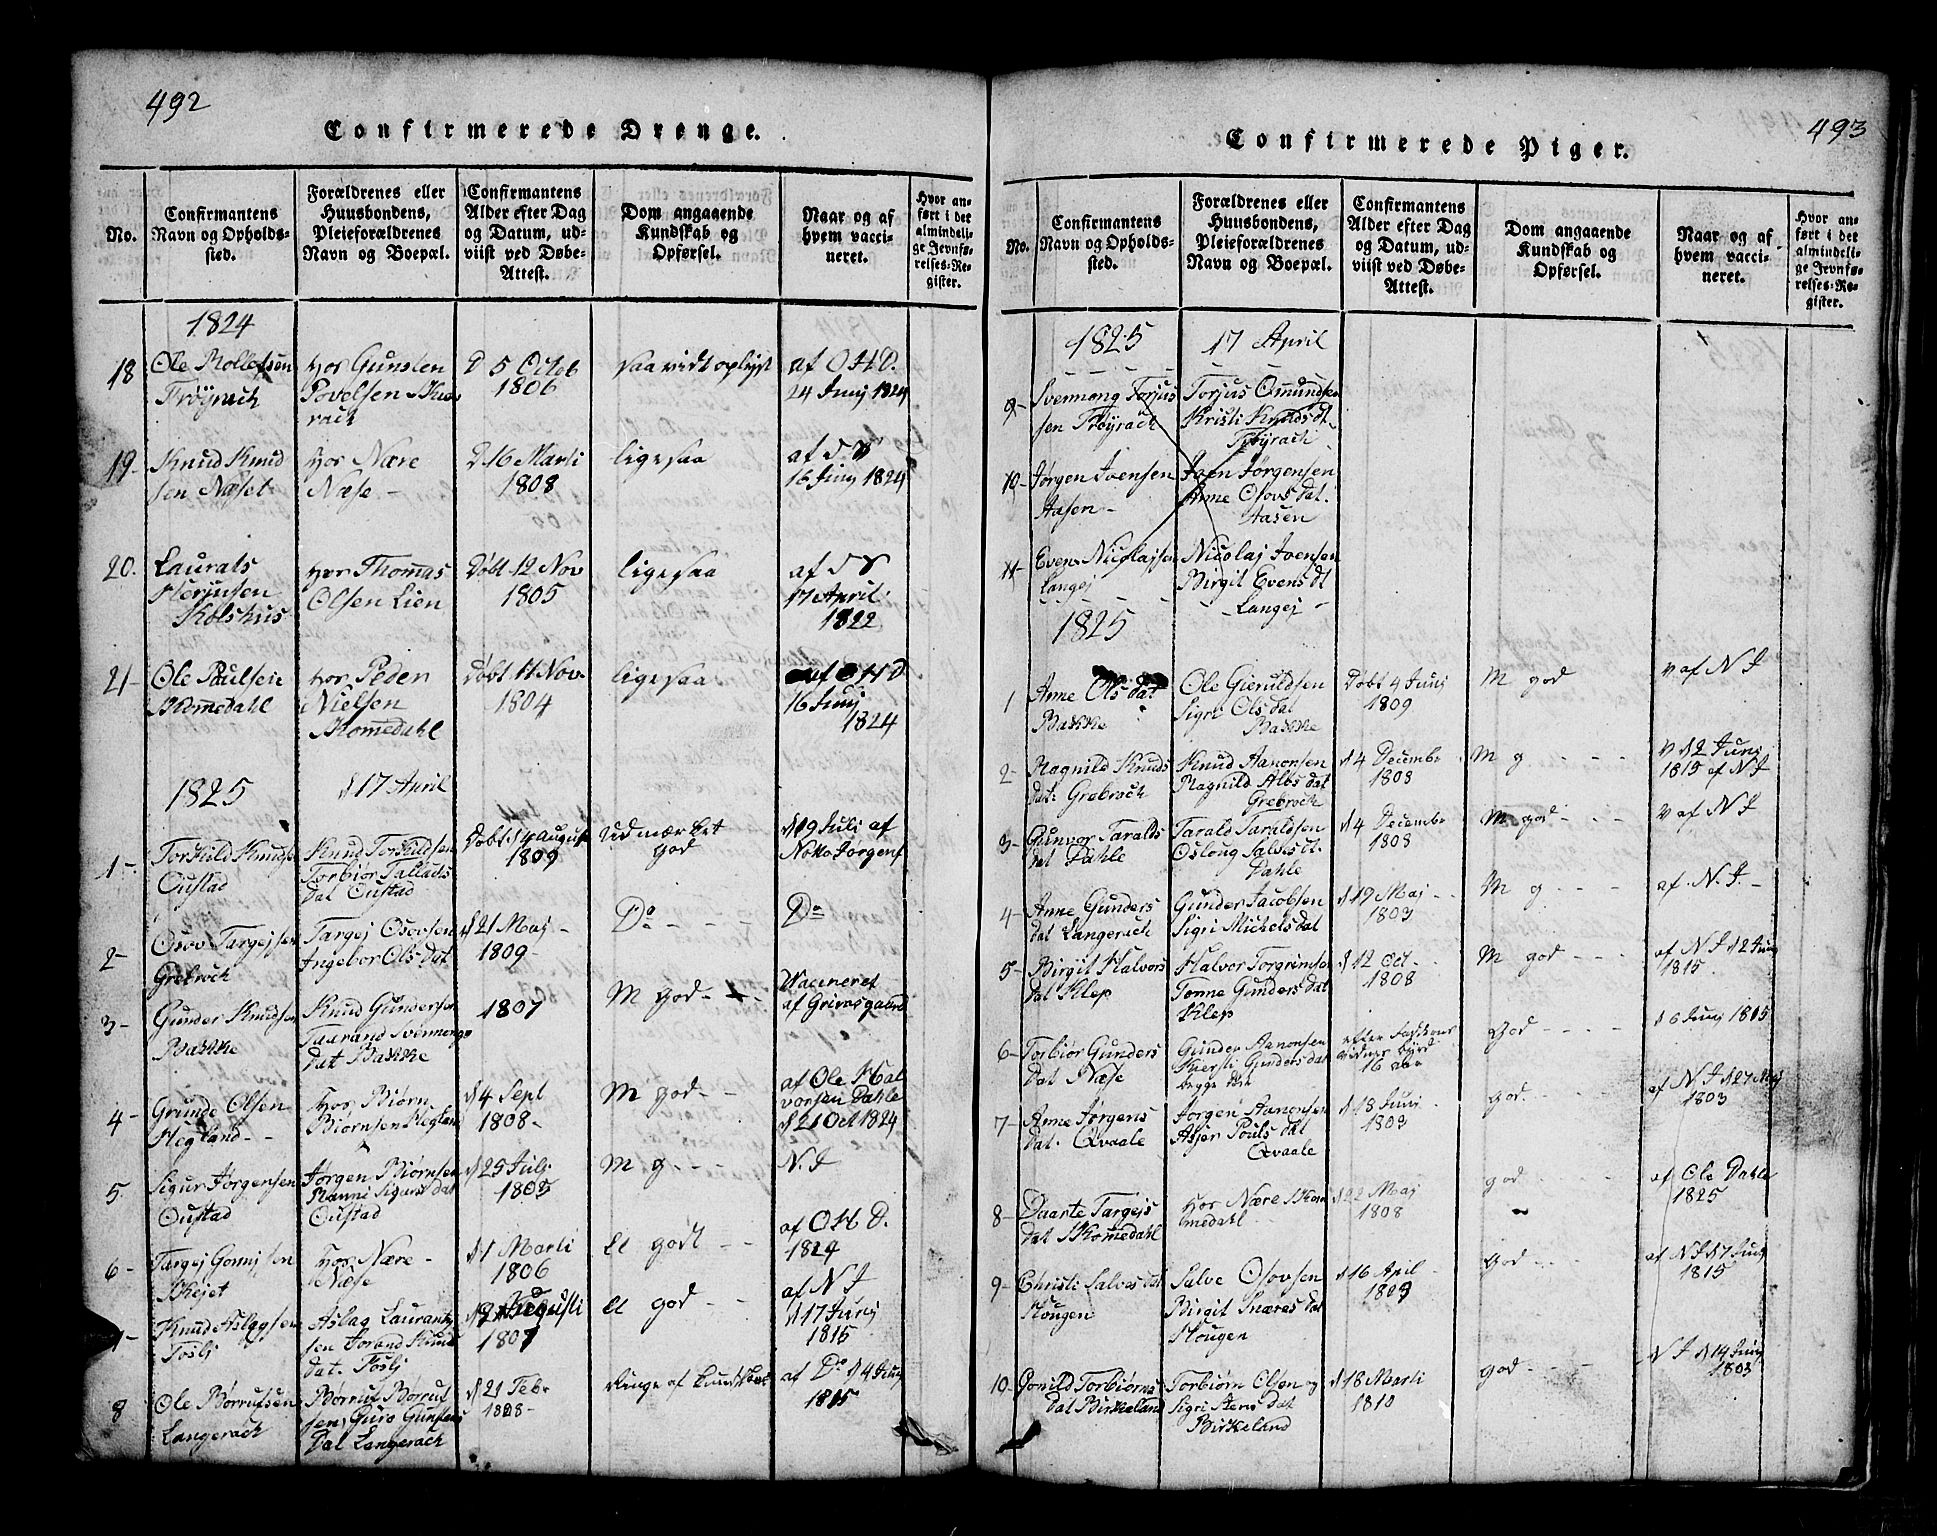 492
Confirmerede Drenge.
No.
Confirmantens
Navn og Opholds-
sted.
Forældrenes eller
Huusbondens,
Pleieforældrenes
Navn og Boepæl.
Confirmantens
Alder efter Dag
og Datum, ud-
viist ved Døbe-
Attest.
Dom angaaende
Kundskab og
Opførsel.
Naar og af
hvem vacci-
neret.
Hvor an-
ført i det
almindeli-
ge Jevnfø-
relses-Re-
gister.
1824
18 Ole Rollefsen
Trøyrach
hos Gunsten
Povelsen
D 5 Octob
1806
saavidt oplyst
af O H D.
24 Junj 1824
19- Knud Knud
sen Næset
hos Nære
Næse -
D 16 Marti
1808
ligesaa
af
16 Junj 1824
20. Laurats
Kolshus
hos Thomas
Olsen Lien
Døbt 12 Nov
1805
ligesaa
af
17 April
1822
21- Ole Paulsen
Homedahl
hos Peder
Nielsen
Homedahl
Døbt 11 Nov.
1804
ligesaa
af O H D
16 Junj
1824
1825
d 17 April
1- Torkild Knudsen
Oustad
Knud Torkildsen
Torbior Tallads
dat Oustad
Døbt d 4 august
1809
Udmærket
god
d 19 Juli af
Jorgens
2- Osov Targejsen
Grebroch
Targej Osovsen
Ingebor Ols dat
d 21 Maj -
1809 -
Do - - -
Do
3- Gunder Knudsen
Bakke
Knud Gundersen
Taarand Svennungs
dat Bakke
1807
M god - -
Vaccineret
af Grimsgaard
4- Grunde Olsen
Hegland - -
Hos Biørn
Biørnsen Hegland
d 4 Sept
1808 -
M god - -
af Ole Hal
vorsen Dahle
d 21 Oct 1824
5. Sigur Jorgensen
Oustad
Jorgen Biørnsen
Ranni Sigurs dat
Oustad
d 25 Juli
M g. - -
N. J
6- Targej
hos Nære -
Næse
d 1 Marti
1806
et godt - -
af O H D.
1824
7- Knud Aslagsen
Toslj
Aslag Laurants
sen Jorand Knuds
dat. Toslj
Augusti
1807
et god - -
af N J
d 17 Junj
1815
8 Ole Børrufsen
Langerach
Børruf Børruf
sen, Guro Gunstens
Dat Langerach
d 21 Febr
ringe af Kundskab
af Do d 4 Junj
1815
493
Confirmerede Piger.
No.
Confirmantens
Navn og Opholds-
sted.
Forældrenes eller
Huusbondens,
Pleieforældrenes
Navn og Boepæl.
Confirmantens
Alder efter Dag
og Datum, ud-
viist ved Døbe-
Attest.
Dom angaaende
Kundskab og
Opførsel.
Naar og af
hvem vacci-
neret.
Hvor an-
ført i det
almindeli-
ge Jevnfø-
relses-Re-
gister.
1825
17 April
9- Svennong Torjus
sen Trøyrach
Torjus Omundsen
Kristi Knuds dt.
Trøyrach
10- Jørgen Ivensen
Aasen -
Iven Jørgensen
Anne Osovs dat.
Aasen
11- Even Nicolajsen
Langej
Nicolaj Ivensen
Birgit Evens dt
Langej -
1825
1 Anne Ols dat
Bakke
Ole Gieruldsen
Sigri Ols dat
Bakke
Døbt 4 Junj
1809
M god
v af N J
2- Ragnild Knuds
dat. Grebroch
Knud Aanonsen
Ragnild Albs dat
Grebroch
d 4 Decembr
1808
M g. - - -
v d 2 Junj
1815 af N J
3- Gunvor Taralds
dat Dahle
Tarald Taraldsen
Osloug Salves dt.
Dahle
d 4 Decembr
1808
M god - - -
v af N J
4- Anne Gunders
dat Langerach
Gunder Jacobsen
Sigri Michels dat
d 19 Maj - -
M g - - -
af. N. J. -
5- Birgit Halvors
dat Klep
Halvor Torgrimsen
Tonne Gunders dat
Klep
d 12 Oct -
1808
M god - - -
af N J d 2 Junj
1815
6- Torbiør Gunders
dat Næse
Gunder Aanonsen
Kiersti Gunders dat
begge døe
efter
16 aar
God - - - -
d 6 Junj 1815
7- Anne Jørgens
dat. Qvaale
Jorgen Aanonsen
Asjer Pouls dat
Qvaale
d 18 Junj
god - - - -
af N J d 27 Maj
8- Daarte Targejs
dat Homedahl
Hos Nære Hom
medahl
d 22 Maj
1808
god - - - -
af Ole Dahle
1825
9- Christi Salves dat
Hougen
Salve Osovsen
Birgit Snæres dat
Hougen
d 16 April -
1809
god - - - -
af N J d 7 Junj
1815
10- Gonild Torbiørns
dat Birkeland
Torbiørn Olsen og
Sigri Stens dat
Birkeland
d 18 Marti
1810
god - - - -
N J d 14 Junj